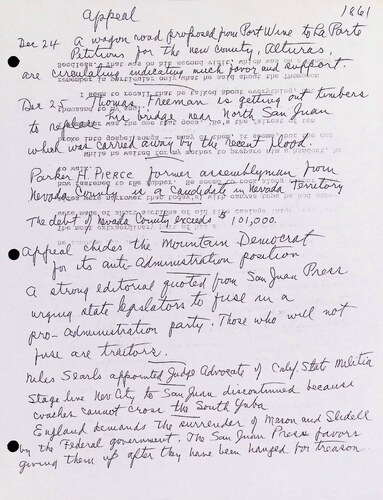 Appeal 1861
Dec 24 A wagon road proposed from Port Wine to La Porte
Petitions for the new county, Alturas,
are circulating, indicating much favor and support.
Dec 25 Thomas Freeman is getting out timbers
to replace his bridge near North San Juan
which was carried away by the recent flood.
Parker H Pierce former assemblyman from
Nevada County is a candidate in Nevada Territory
The debt of Nevada County exceeds $101,000.
Appeal chides the Mountain Democrat
for its anti-Administration position
A strong editorial quoted from San Juan Press
urging state legislators to fuse in a
pro-administration party. Those who will not
fuse are traitors.
Niles Searls appointed Judge Advocate of Calif. Stat Militia
Stage line Nev City to San Juan discontinued because
coaches cannot cross the South Yuba
England demands the surrender of Mason and Slidell
by the Federal government. The San Juan Press favors
giving them up after they have been hanged for treason.